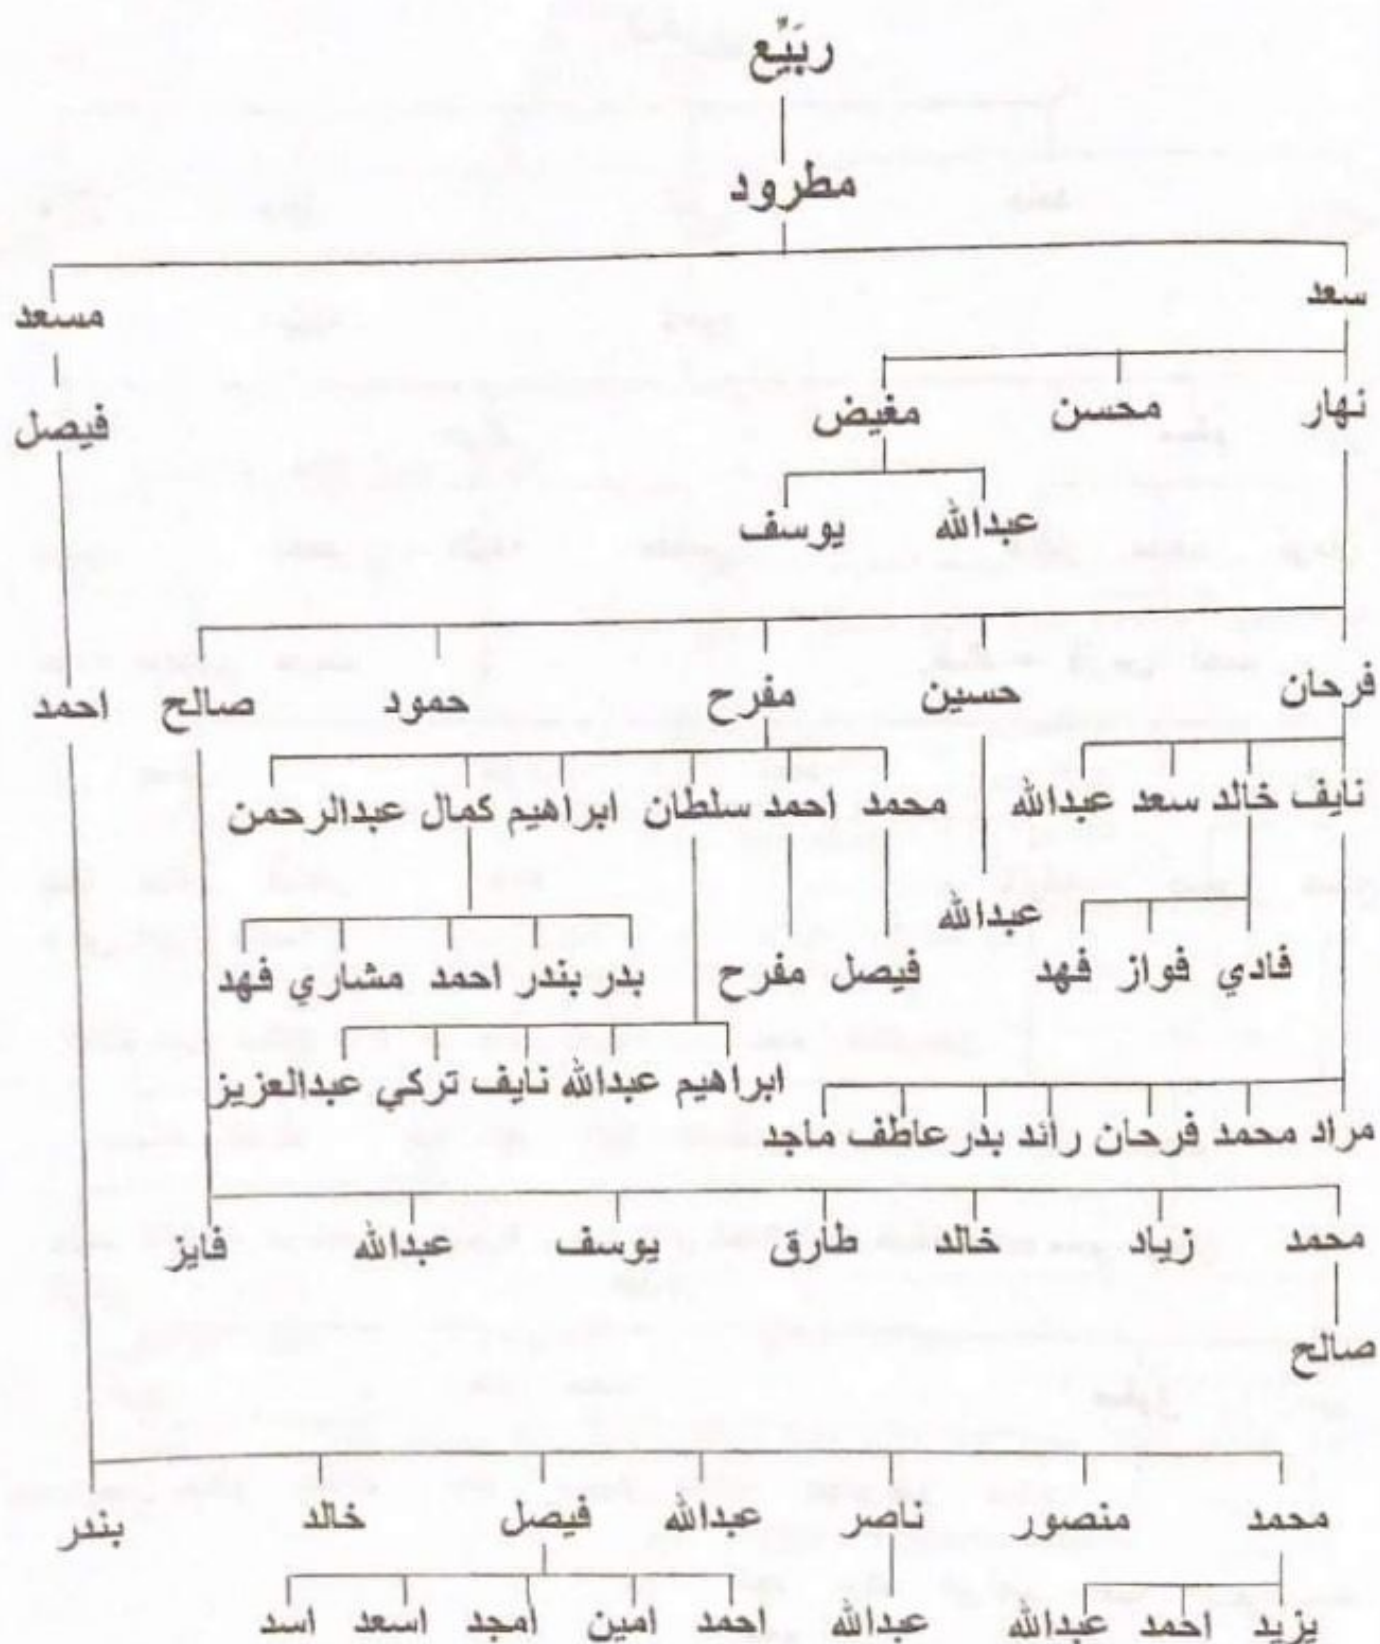 ربَيِّع
مطرود
سعد مسعد
نهار محسن مغيض فيصل
عبدالله يوسف
فرحان حسين مفرح حمود صالح احمد
نايف خالد سعد عبدالله محمد احمد سلطان ابراهيم كمال عبدالرحمن
عبدالله
فادي فواز فهد فيصل مفرح بدر بندر احمد مشاري فهد
ابراهيم عبدالله نايف تركي عبدالعزيز
مراد محمد فرحان رائد بدر عاطف ماجد
محمد زياد خالد طارق يوسف عبدالله فايز
صالح
محمد منصور ناصر عبدالله فيصل خالد بندر
يزيد احمد عبدالله عبدالله احمد امين امجد اسعد اسد